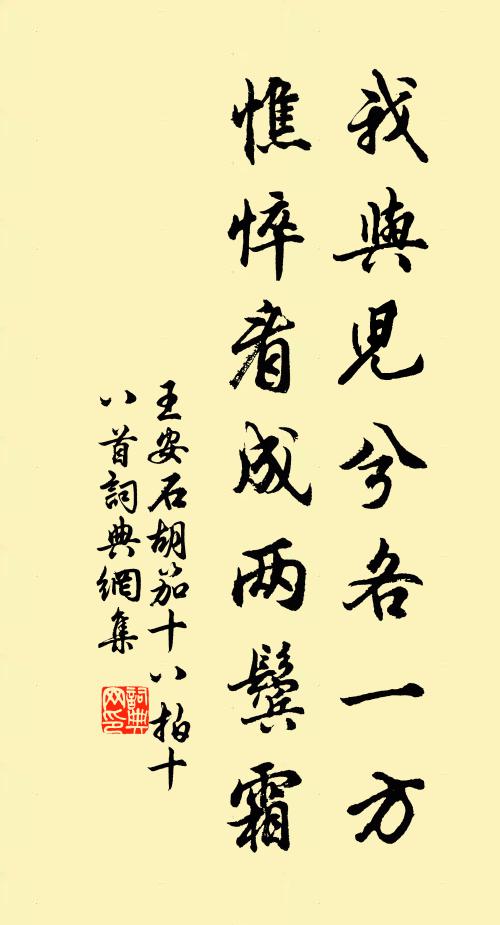 我與兒兮各一方
憔悴看成两鬓霜
王安石胡笳十八拍十
八首詞典網集
詞典
网印